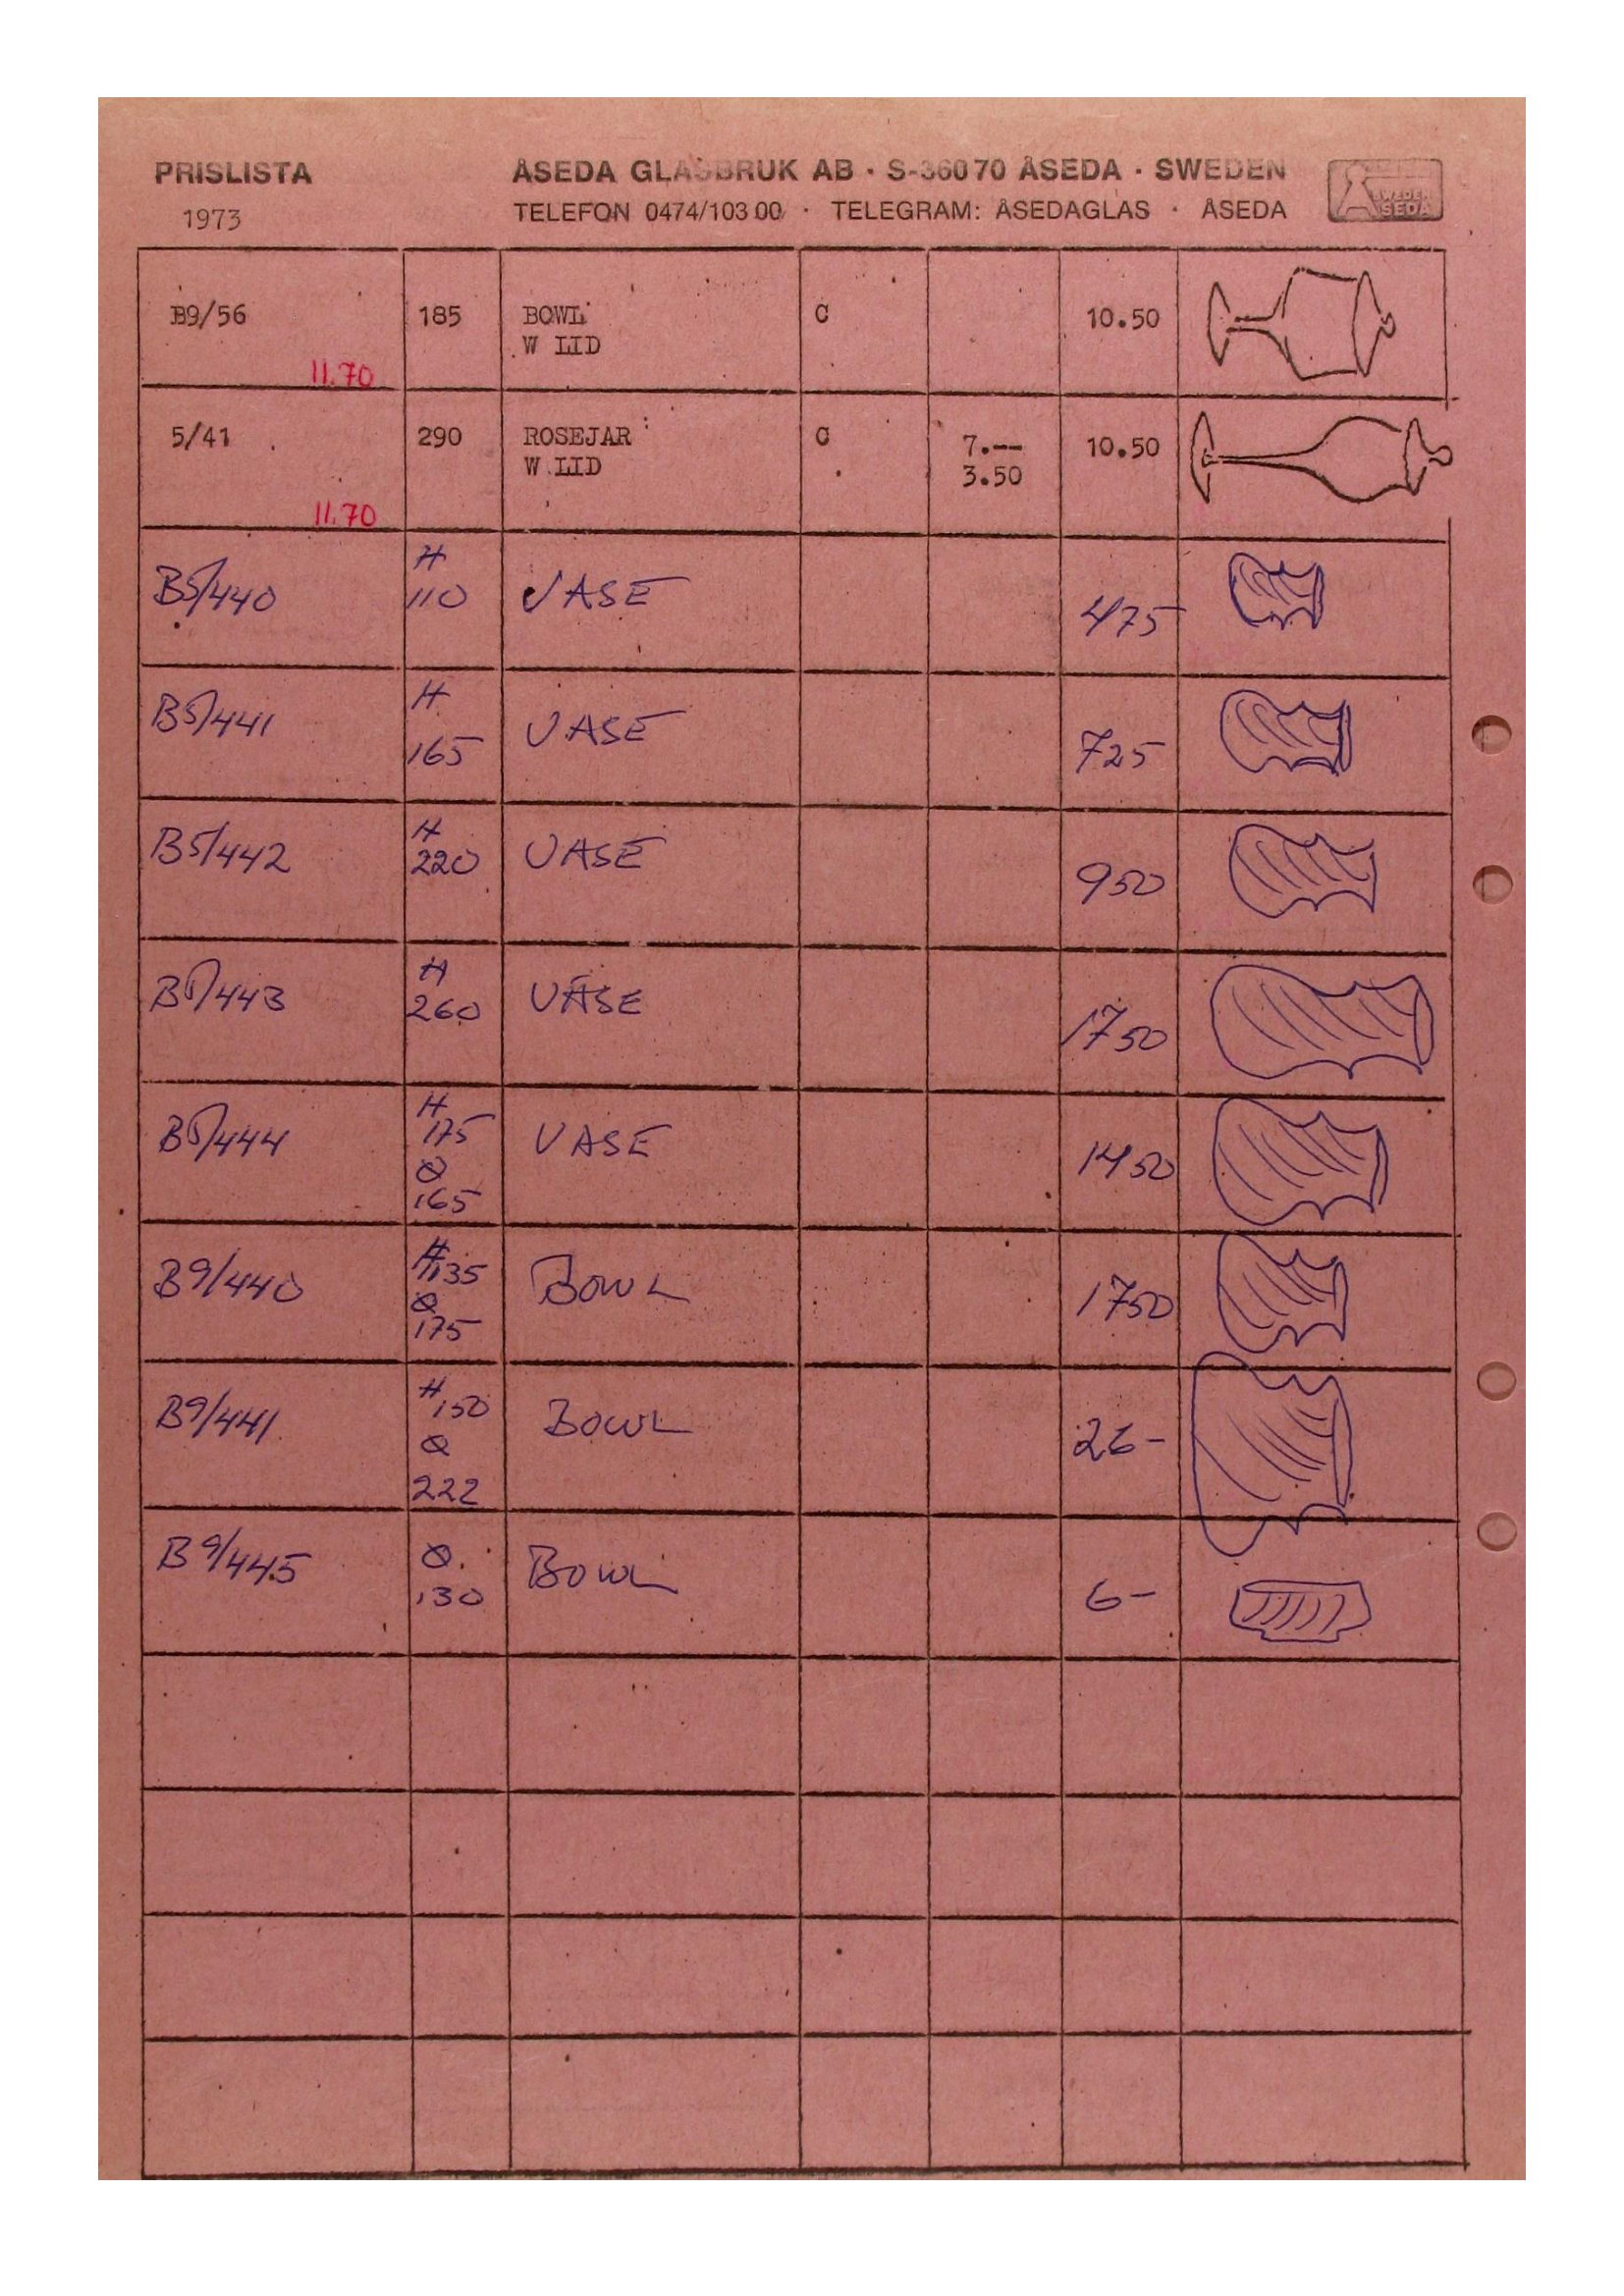 PRISLISTA
ÅSEDA GLASBRUK AB · S-360 70 ÅSEDA · SWEDEN
1973
TELEFON 0474/103 00 · TELEGRAM: ÅSEDAGLAS · ÅSEDA
SWEDEN
ÅSEDA
B9/56 185 BOWL C 10.50
W LID
11.70
5/41 290 ROSEJAR C 7.-- 10.50
W LID 3.50
11.70
B5/440 H VASE
110 475
B5/441 H VASE
165 725
B5/442 H VASE
220 950
B5/443 H VASE
260 1750
B5/444 H VASE
175 1450
Ø
165
B9/440 H 135 BOWL 1750
Ø
175
B9/441 H 150 BOWL 26-
Ø
222
B9/445 Ø BOWL
130 6-